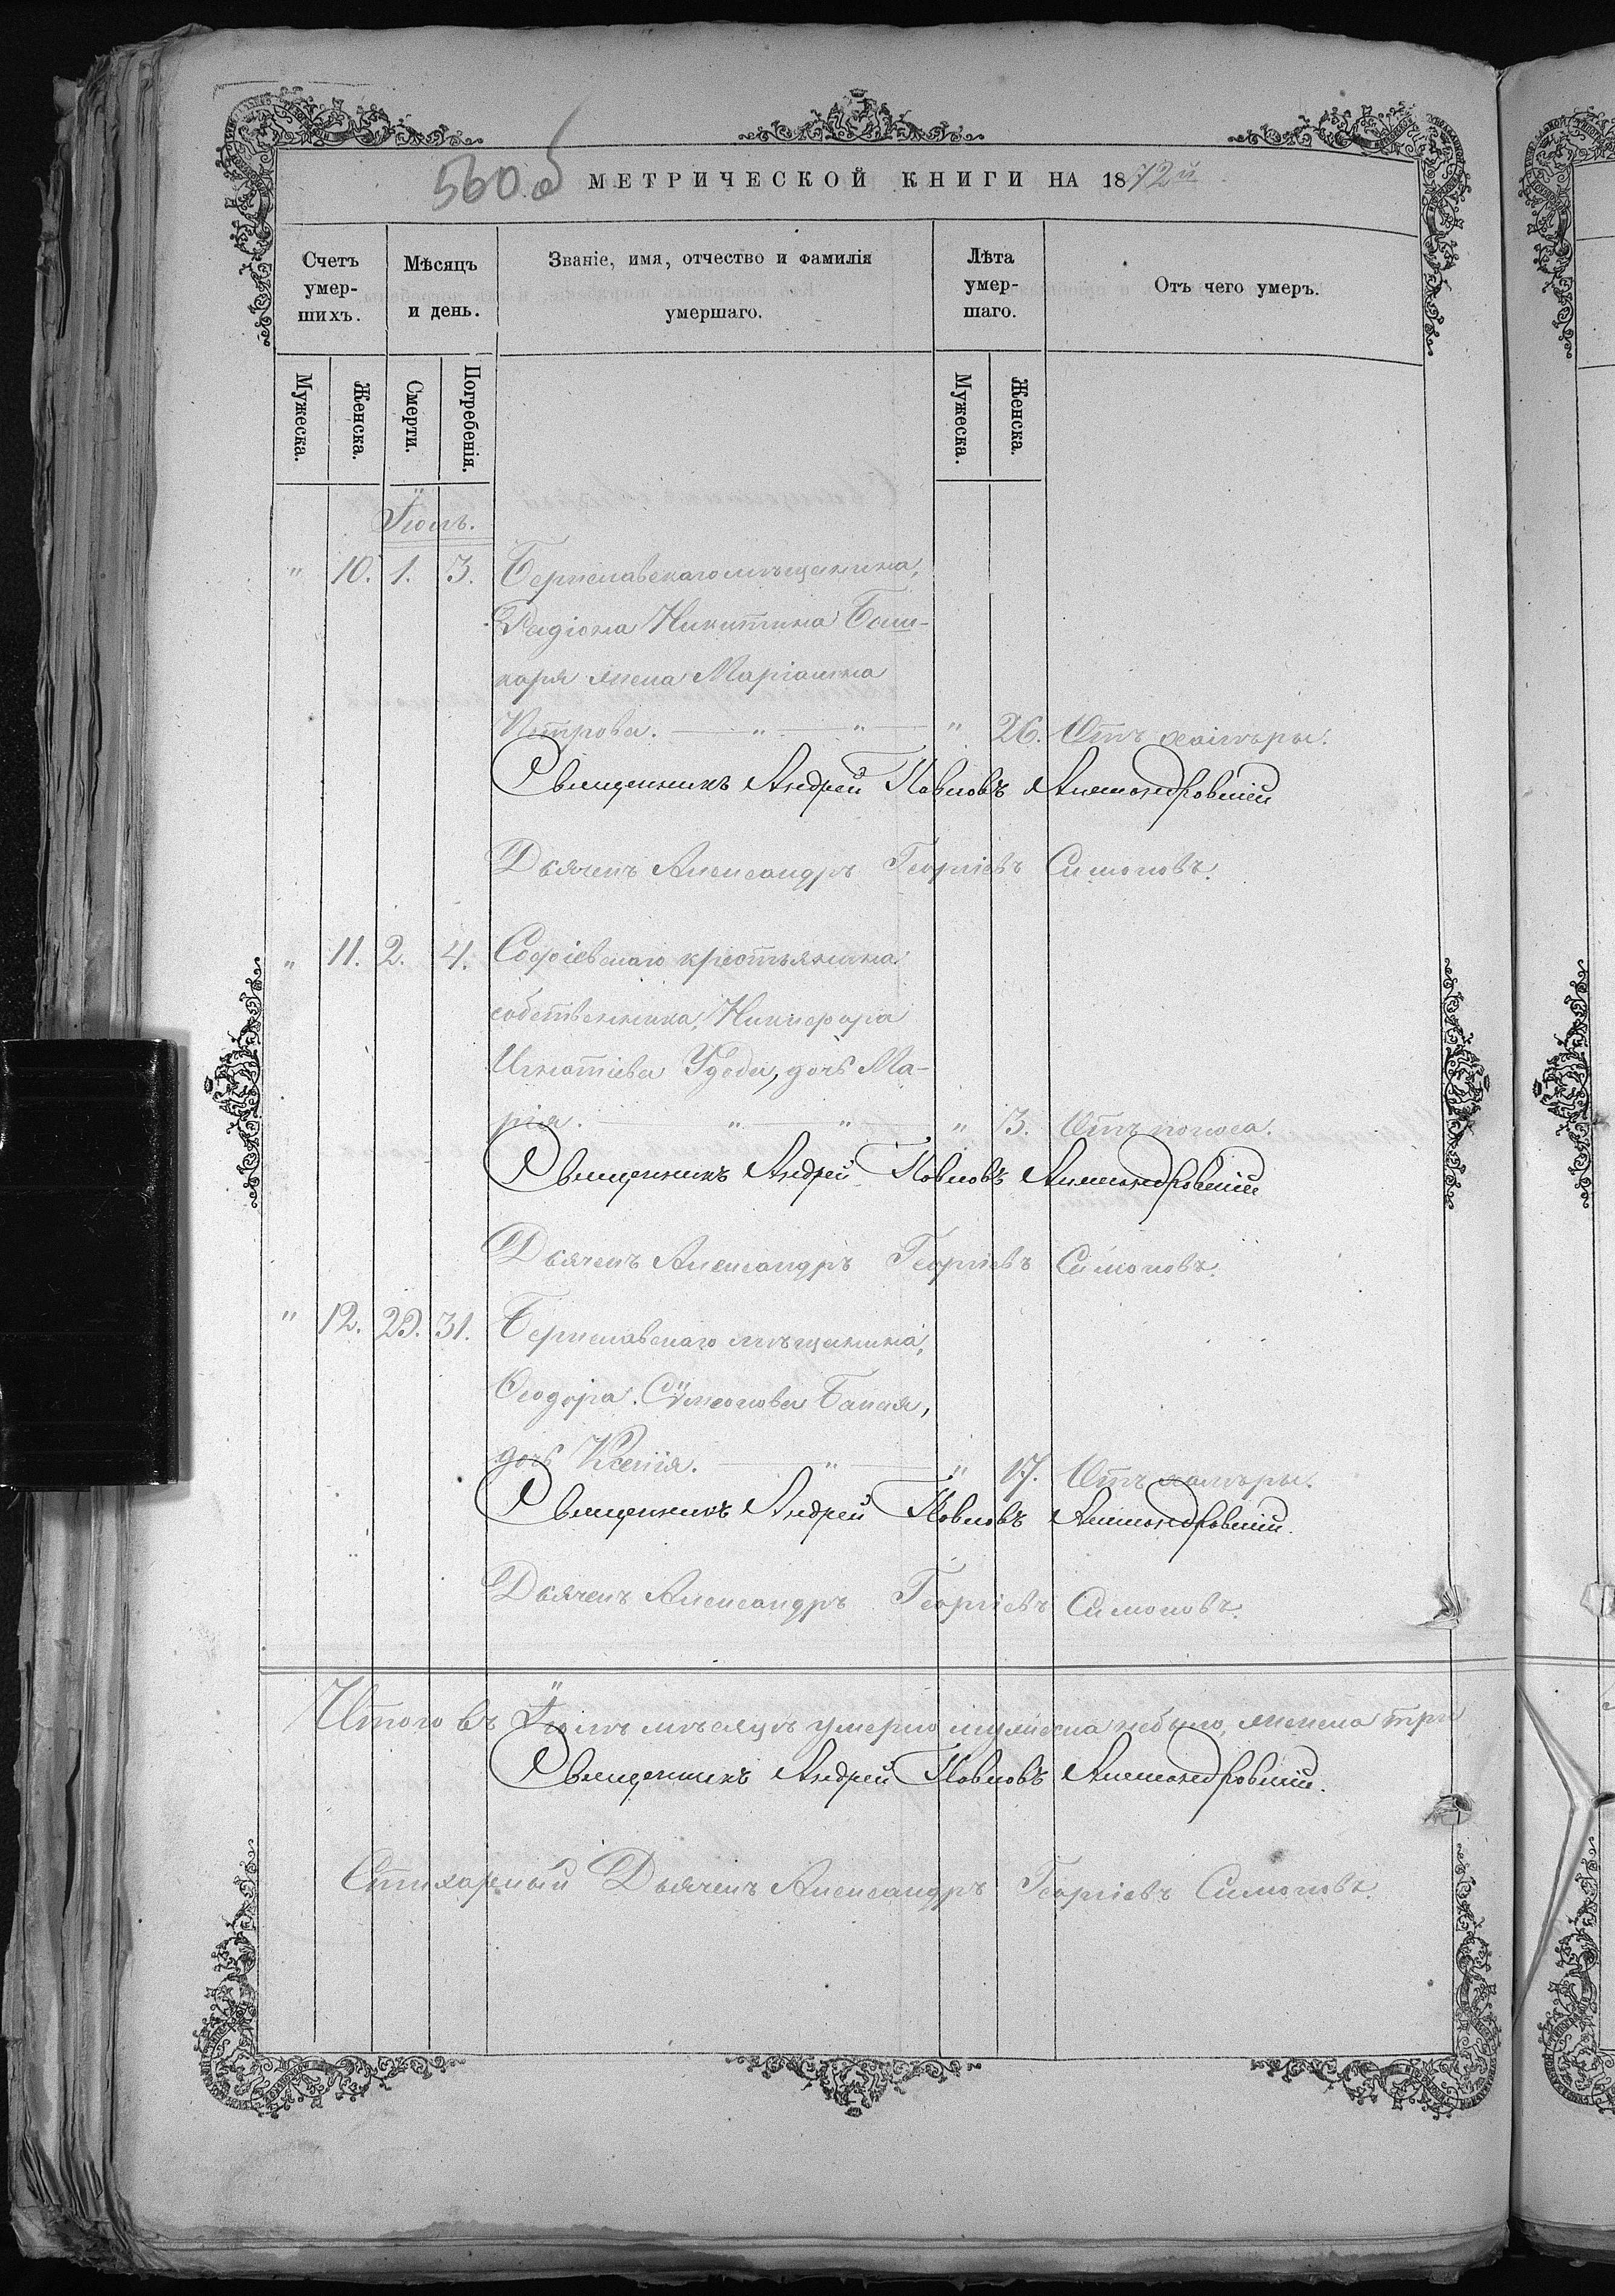 560 об
МЕТРИЧЕСКОЙ КНИГИ НА 1872й
Счетъ умер-шихъ.
Мѣсяцъ и день.
Званіе, имя, отчество и фамилія умершаго.
Лѣта умер-шаго.
Отъ чего умеръ.
Мужеска.
Женска.
Смерти.
Погребенія.
Мужеска.
Женска.
Іюль.
" 10. 1. 3. Бериславскаго мѣщанина,
Радіона Никитина Баш-
каря жена Маріамна
Петрова. — " — " — " 26. Отъ холѣры.
Священникъ Андрей Павловъ Александровскій
Дьячекъ Александръ Георгіевъ Симоновъ.
" 11. 2. 4. Софіевскаго крестьянина
собственника, Никифора
Игнатіева Удода, дочь Ма-
рія. — " — " — " 3. Отъ поноса.
Священникъ Андрей Павловъ Александровскій
Дьячекъ Александръ Георгіевъ Симоновъ.
" 12. 29. 31. Бериславскаго мѣщанина,
Ѳеодора Сѵмеонова Бакая,
дочь Ксенія. — " — " 17. Отъ холѣры.
Священникъ Андрей Павловъ Александровскій.
Дьячекъ Александръ Георгіевъ Симоновъ.
Итого въ Іюлѣ мѣсяцѣ умерло мужеска небыло, женска три
Священникъ Андрей Павловъ Александровскій.
Стихарный Дьячекъ Александръ Георгіевъ Симоновъ.